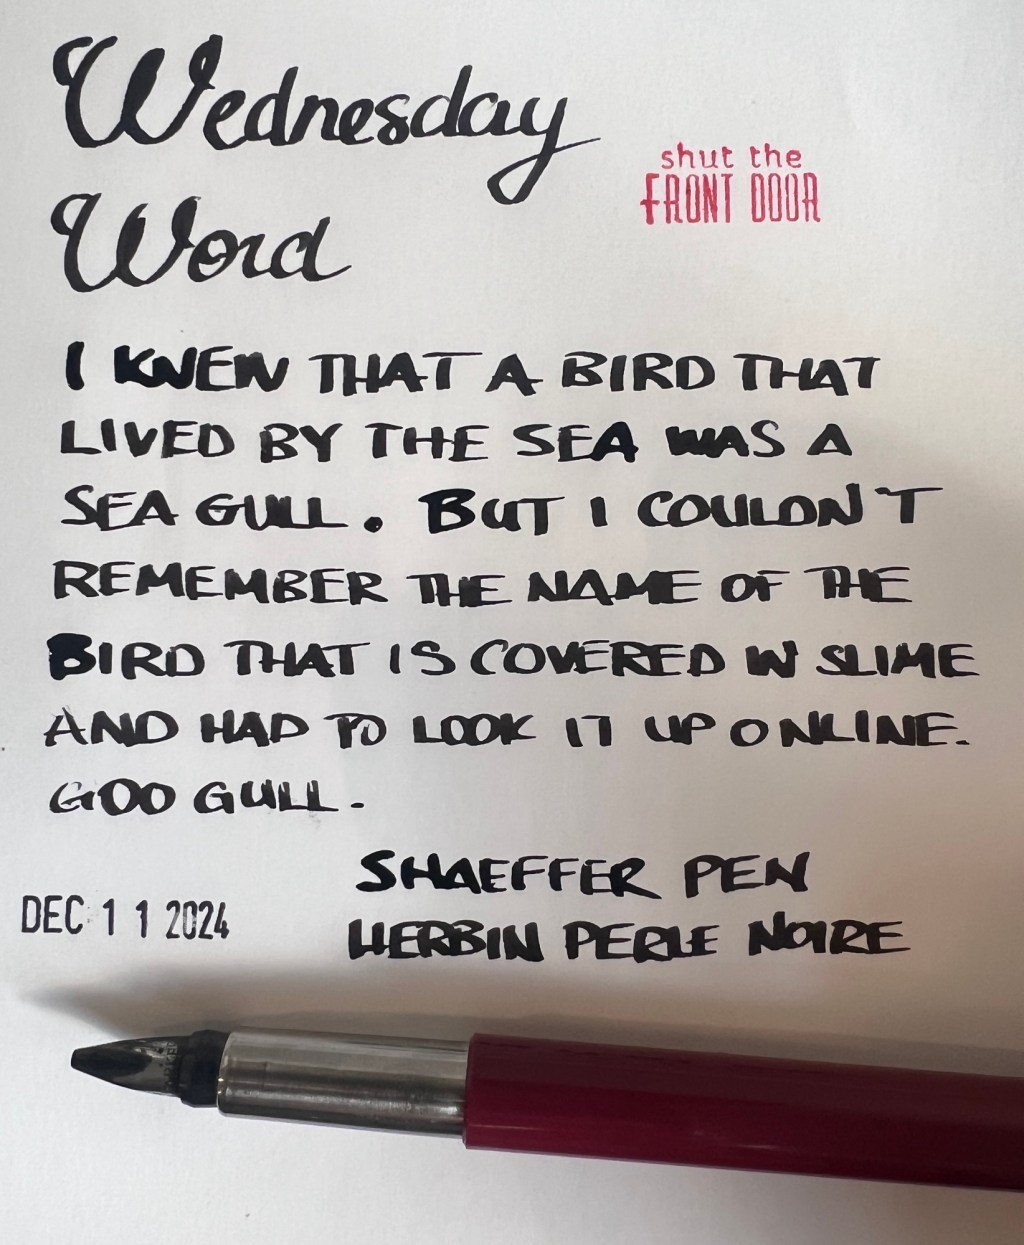 Wednesday
Word
shut the
FRONT DOOR
I KNEW THAT A BIRD THAT
LIVED BY THE SEA WAS A
SEA GULL. BUT I COULDN'T
REMEMBER THE NAME OF THE
BIRD THAT IS COVERED IN SLIME
AND HAD TO LOOK IT UP ONLINE.
GOO GULL.
SHAEFFER PEN
HERBIN PERLE NOIRE
DEC 11 2024
PARKER